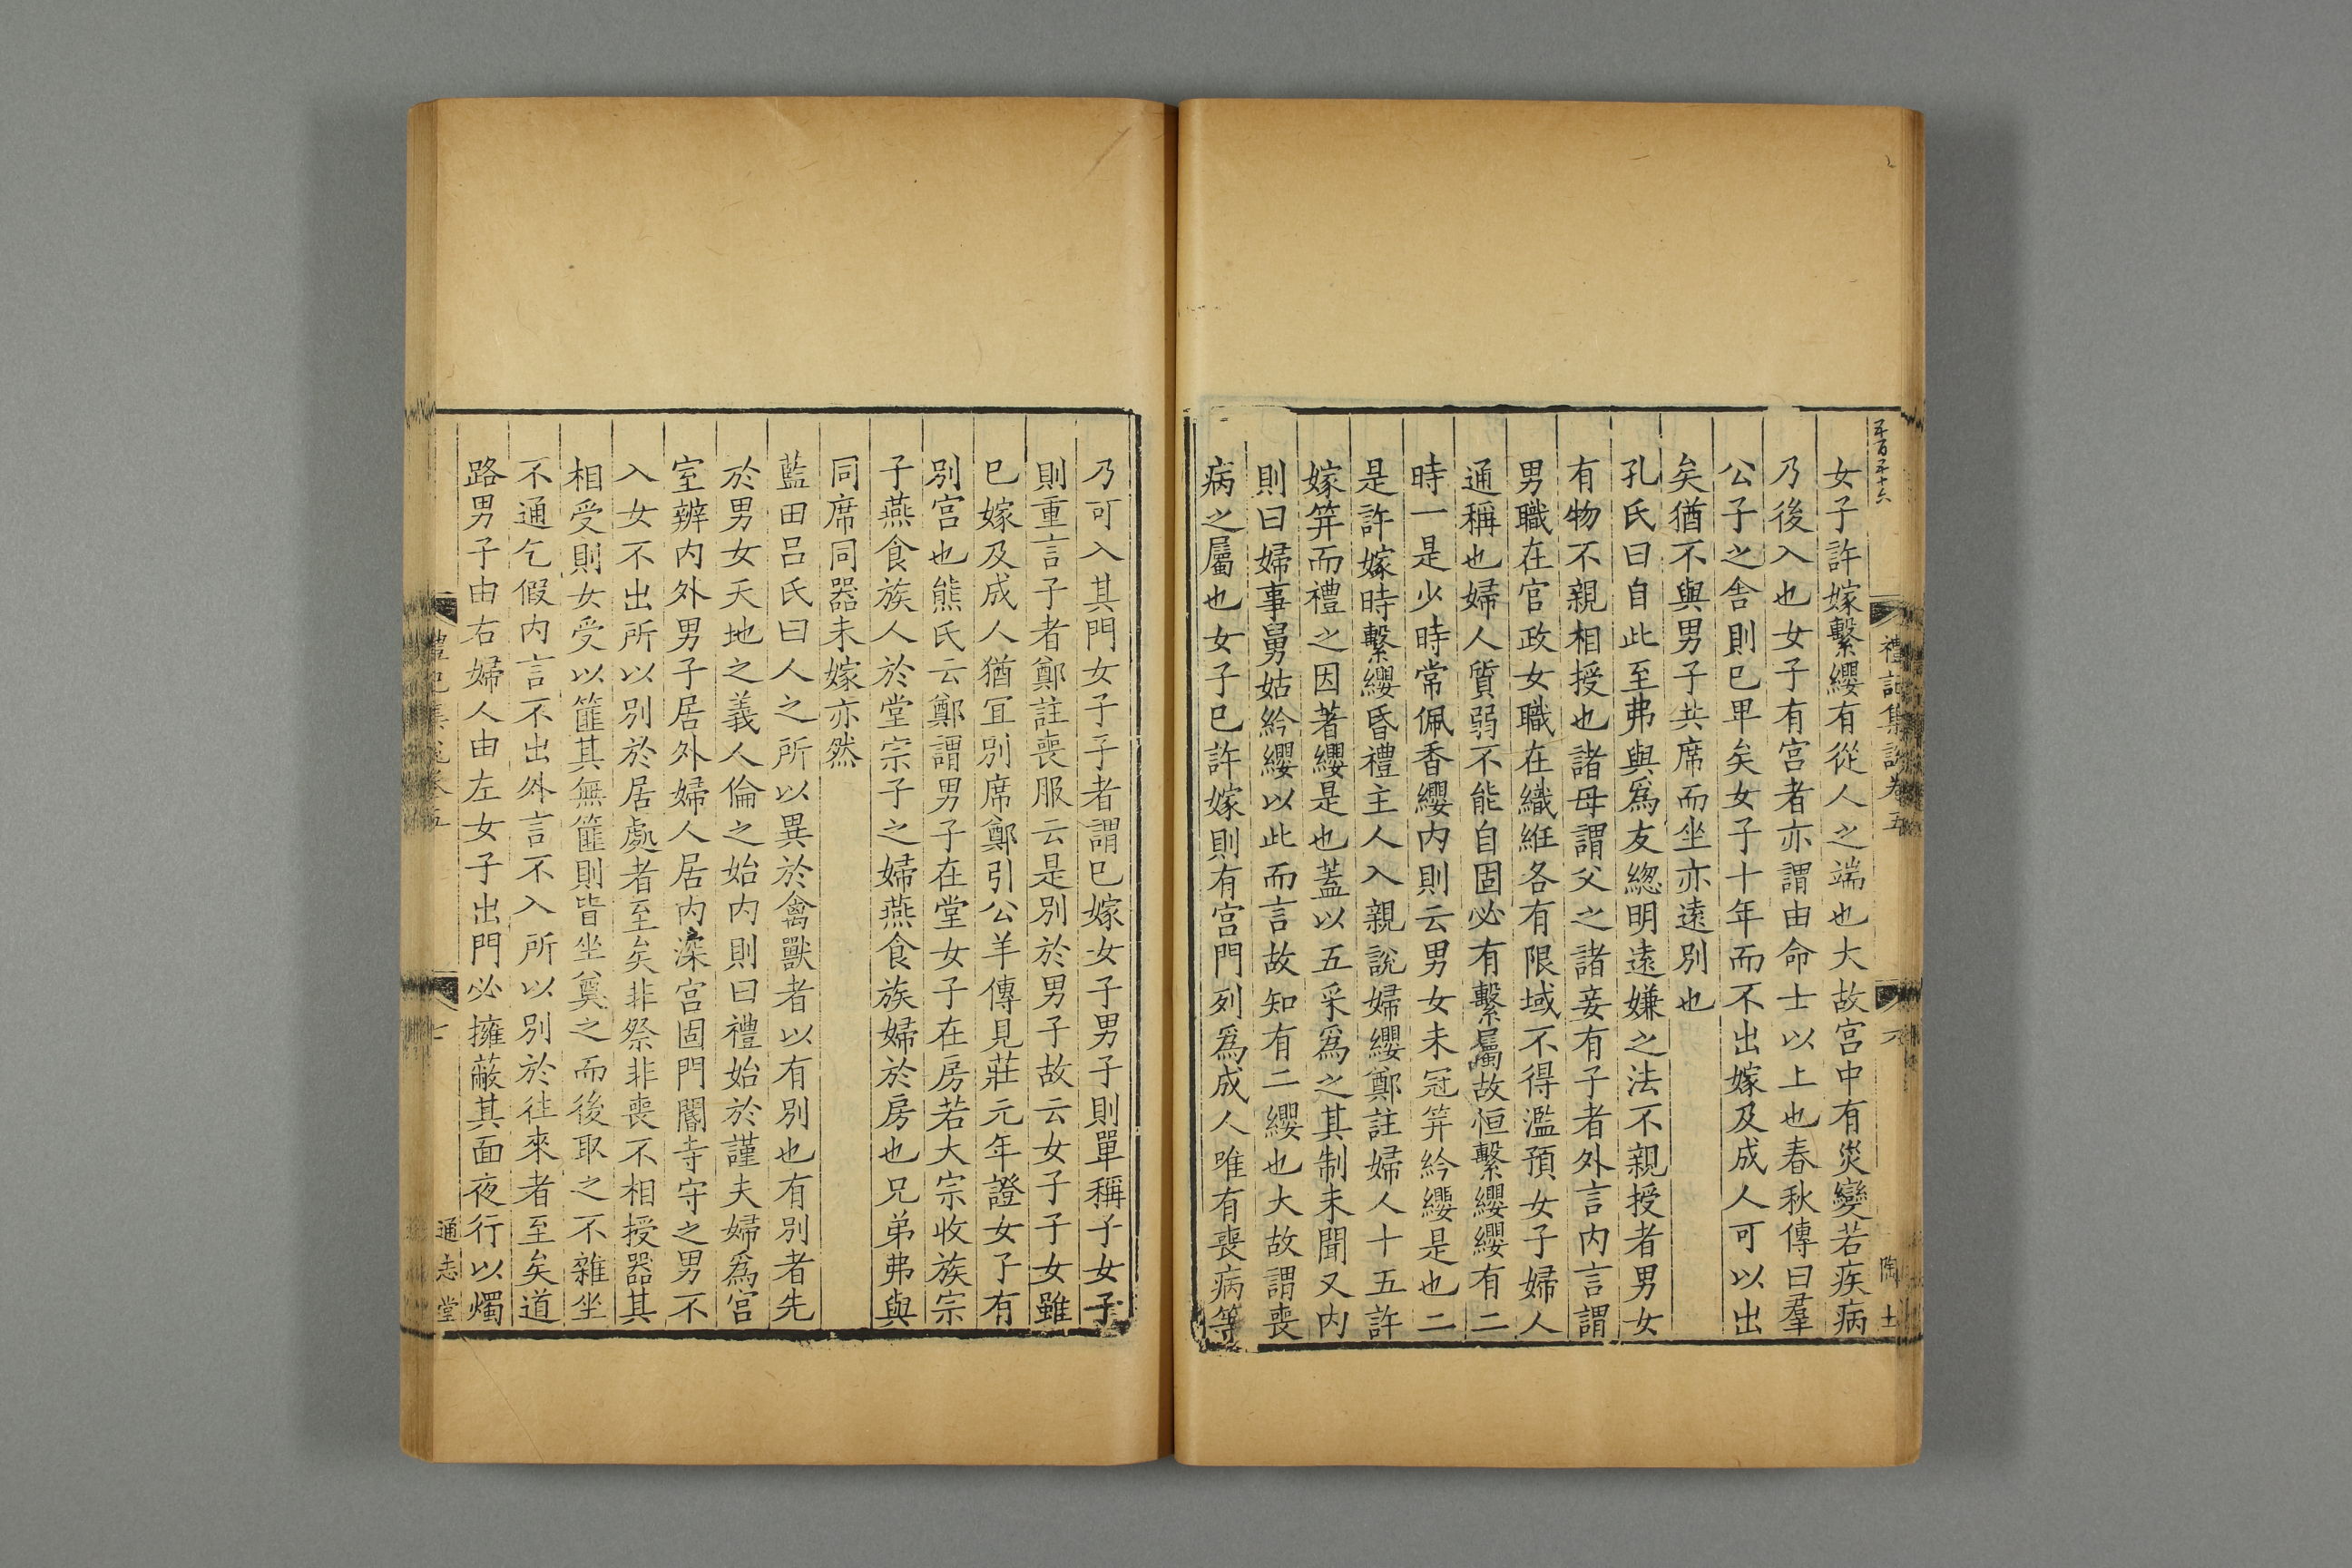 五百五十六
禮記集說卷五
六
陶士
女子許嫁繫纓有從人之端也大故宮中有災變若疾病
乃後入也女子有宮者亦謂由命士以上也春秋傳曰羣
公子之舍則已卑矣女子十年而不出嫁及成人可以出
矣猶不與男子共席而坐亦遠別也
孔氏曰自此至弗與爲友緫明遠嫌之法不親授者男女
有物不親相授也諸母謂父之諸妾有子者外言內言謂
男職在官政女職在織絍各有限域不得濫預女子婦人
通稱也婦人質弱不能自固必有繫屬故恒繫纓纓有二
時一是少時常佩香纓內則云男女未冠笄紟纓是也二
是許嫁時繫纓昏禮主人入親說婦纓鄭註婦人十五許
嫁笄而禮之因著纓是也蓋以五采爲之其制未聞又內
則曰婦事舅姑紟纓以此而言故知有二纓也大故謂喪
病之屬也女子已許嫁則有宮門列爲成人唯有喪病等
乃可入其門女子子者謂已嫁女子男子則單稱子女子
則重言子者鄭註喪服云是別於男子故云女子子女雖
已嫁及成人猶宜別席鄭引公羊傳見莊元年證女子有
別宮也熊氏云鄭謂男子在堂女子在房若大宗收族宗
子燕食族人於堂宗子之婦燕食族婦於房也兄弟弗與
同席同器未嫁亦然
藍田呂氏曰人之所以異於禽獸者以有別也有別者先
於男女天地之義人倫之始內則曰禮始於謹夫婦爲宮
室辨內外男子居外婦人居內深宮固門閽寺守之男不
入女不出所以別於居處者至矣非祭非喪不相授器其
相受則女受以篚其無篚則皆坐奠之而後取之不雜坐
不通乞假內言不出外言不入所以別於徃來者至矣道
路男子由右婦人由左女子出門必擁蔽其面夜行以燭
禮記集說卷五
七
通志堂